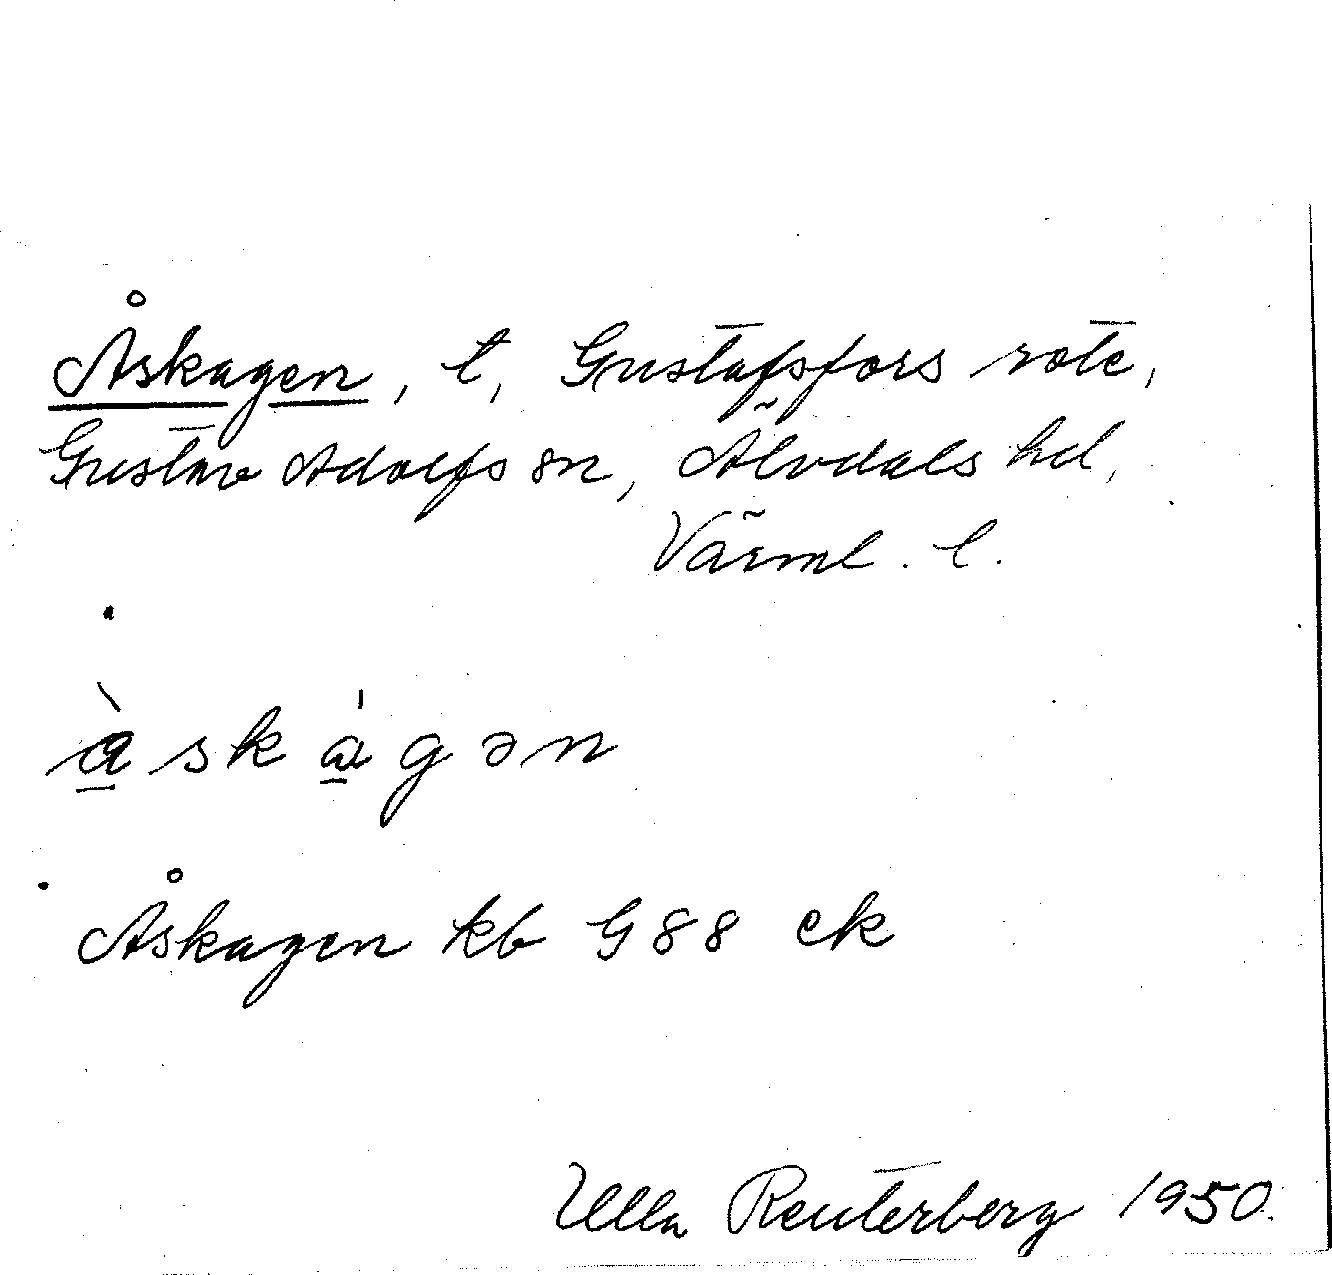 Åskagen, t, Gustafsfors rote,
Gustav Adolfs sn, Älvdals hd,
Värml. l.
å̀skágən
Åskagen kb G88 ek
Ulla Reuterberg 1950.